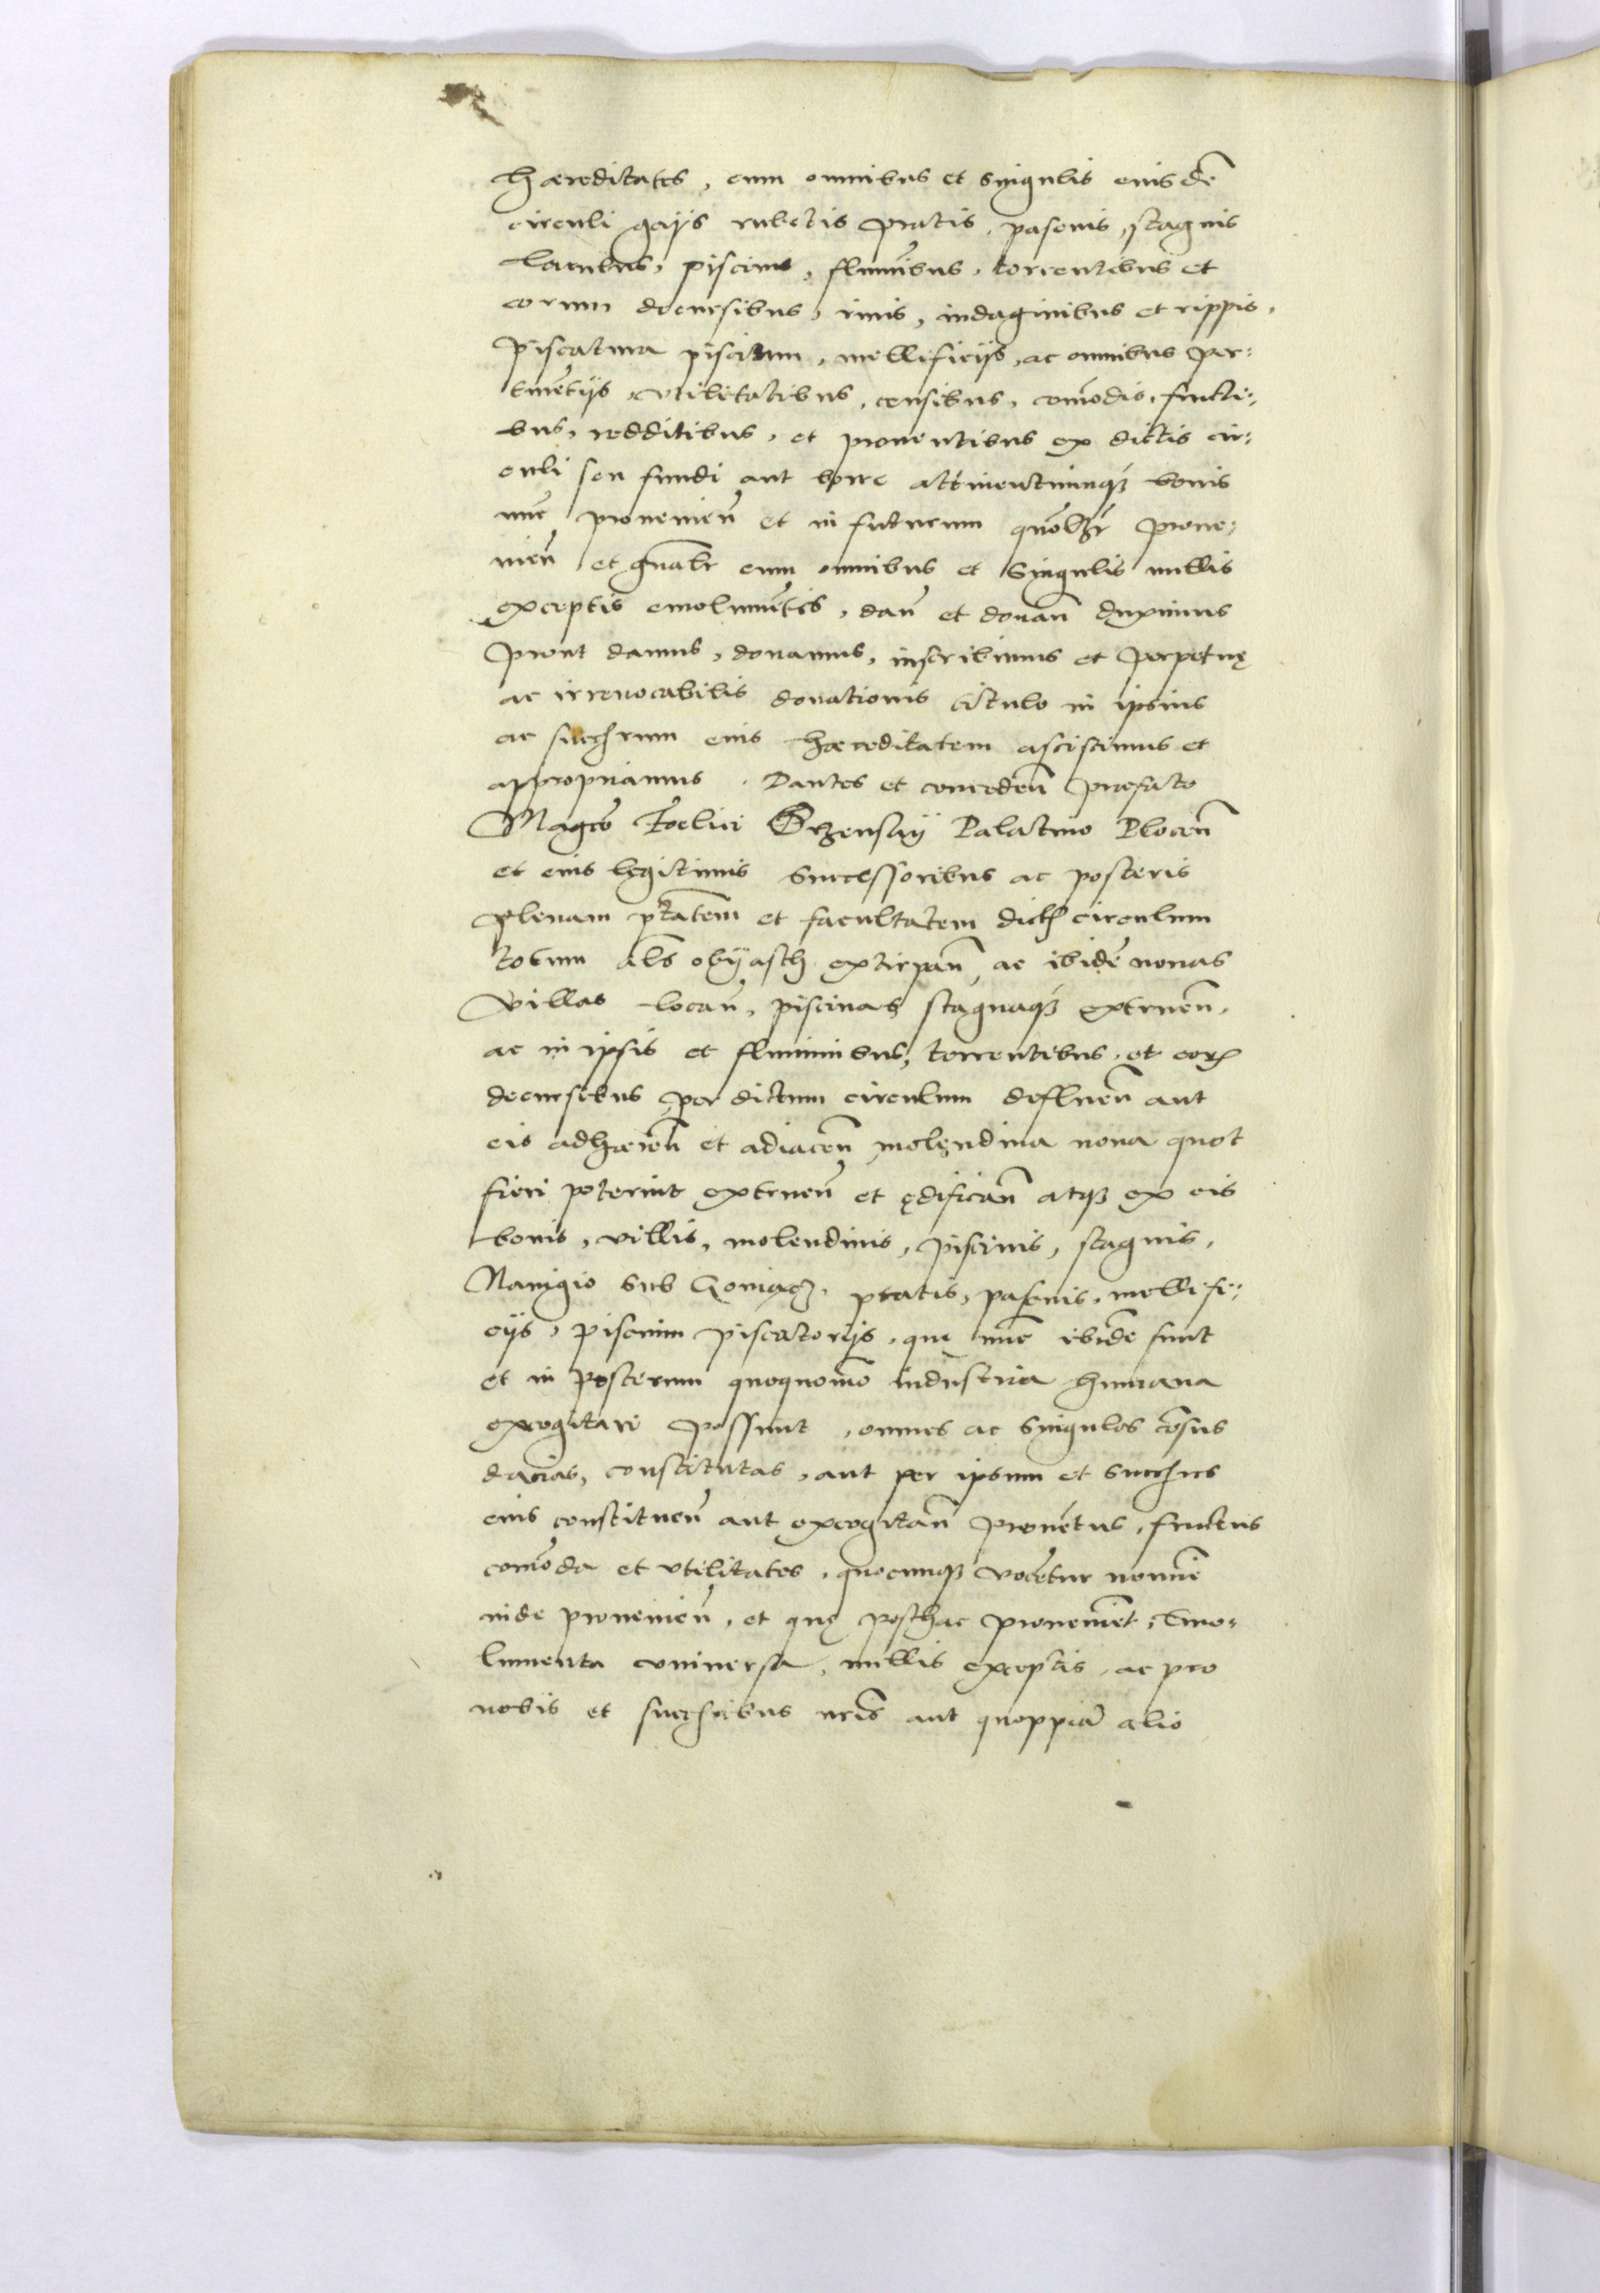 hæreditates, cum omnibus et singulis eiusdē
circuli gaijs rubetis pratis, pascuis, stagnis
lacubus, piscinis, fluminibus, torrentibus et
eorum decursibus, rivis, indaginibus et rippis,
piscatura piscium, mellificijs, ac omnibus per:
tinētijs, vtilitatibus, censibus, comōdis, fructi:
bus, redditibus, et prouentibus ex dictis cir:
culi seu fundi aut borre attinentiumq3 bonis
nūc prouenieñ et in futurum quōlỉr proue:
nieñ et gnālr cum omnibus et singulis nullis
exceptis emolumētis, dañ et donañ duximus
prout damus, donamus, inscribimus et perpetuę
ac irreuocabilis donationis titulo in ipsius
ac succꝭrum eius hæreditatem asciscimus et
appropriamus. Dantes et concedeñ præfato
Magco Foelici Srzensky Palatino Ploceñ
et eius legitimis successoribus ac posteris
plenam ptātem et facultatem dictꝭ circulum
totum als obyasch extirpañ ac ibidē nouas
villas locañ, piscinas stagnaq3 extrueñ,
ac in ipsis et fluminibus, torrentibus, et eorꝝ
decursibus per dictum circulum deflueñ aut
eis adhæreñ et adiaceñ molendina noua quot
fieri poterint extrueñ et ędificañ atq3 ex eis
bonis, villis, molendinis, piscinis, stagnis,
Nauigio sub Goniącz, pratis, pascuis, mellifi:
cijs, piscium piscatorijs, quę nūc ibidē sunt
et in posterum quoquomō industria humana
excogitari possunt, omnes ac singulos cēsus
dacias, constitutas, aut per ipsum et succꝭres
eius constitueñ aut excogitañ prouētus, fructus
comōda et vtilitates, quocunq3 vocētur nomine
inde prouenieñ, et quę posthac prouenient, Emo:
lumenta vniuersa, nullis exceptis, ac pro
nobis et succꝭribus nrīs aut quoppiā alio